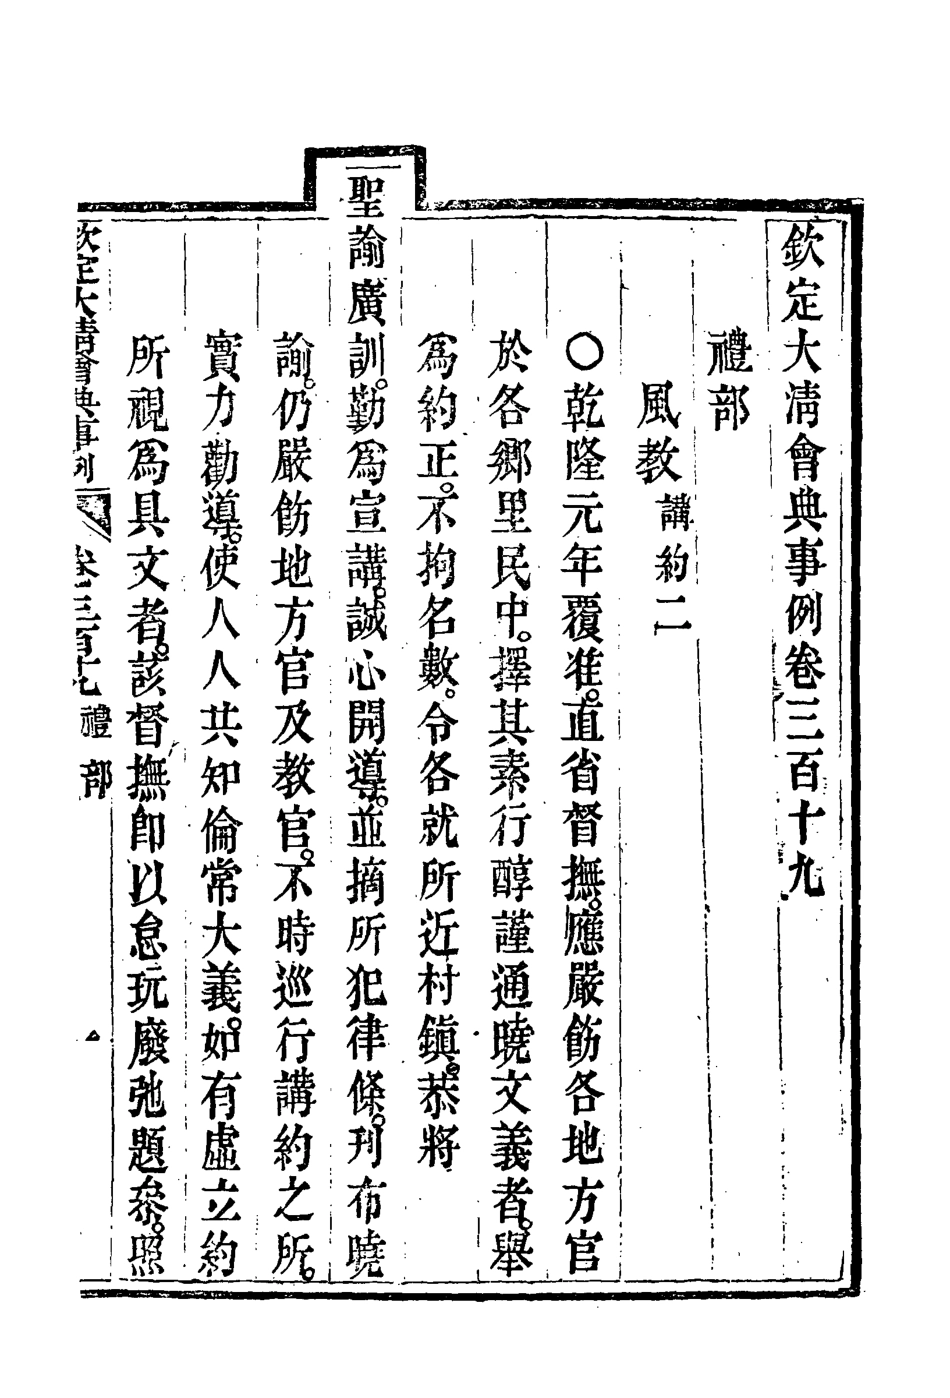 欽定大清會典事例卷三百十九
禮部
風教 講約二
○乾隆元年覆准。直省督撫。應嚴飭各地方官
於各鄉里民中。擇其素行醇謹通曉文義者。舉
爲約正。不拘名數。令各就所近村鎮。恭將
聖諭廣訓。勤爲宣講。誠心開導。並摘所犯律條。刊布曉
諭。仍嚴飭地方官及教官。不時巡行講約之所。
實力勸導。使人人共知倫常大義。如有虛立約
所視爲具文者。該督撫卽以怠玩廢弛題叅。照
欽定大清會典事例 卷三百十九 禮部